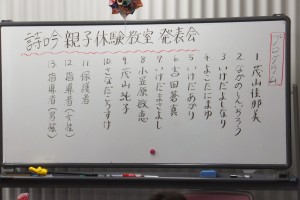 詩吟親子体験教室発表会
プログラム
1 茂山佳那美
2 ながのしんぢろう
3 いけだよしなり
4 よこたにまゆ
5 いけだあかり
6 吉田蒼真
7 いけだまさよし
8 小笠原敏恵
9 茂山純子
10 さなだこうすけ
11 保護者
12 指導者(女性)
13 指導者(男性)